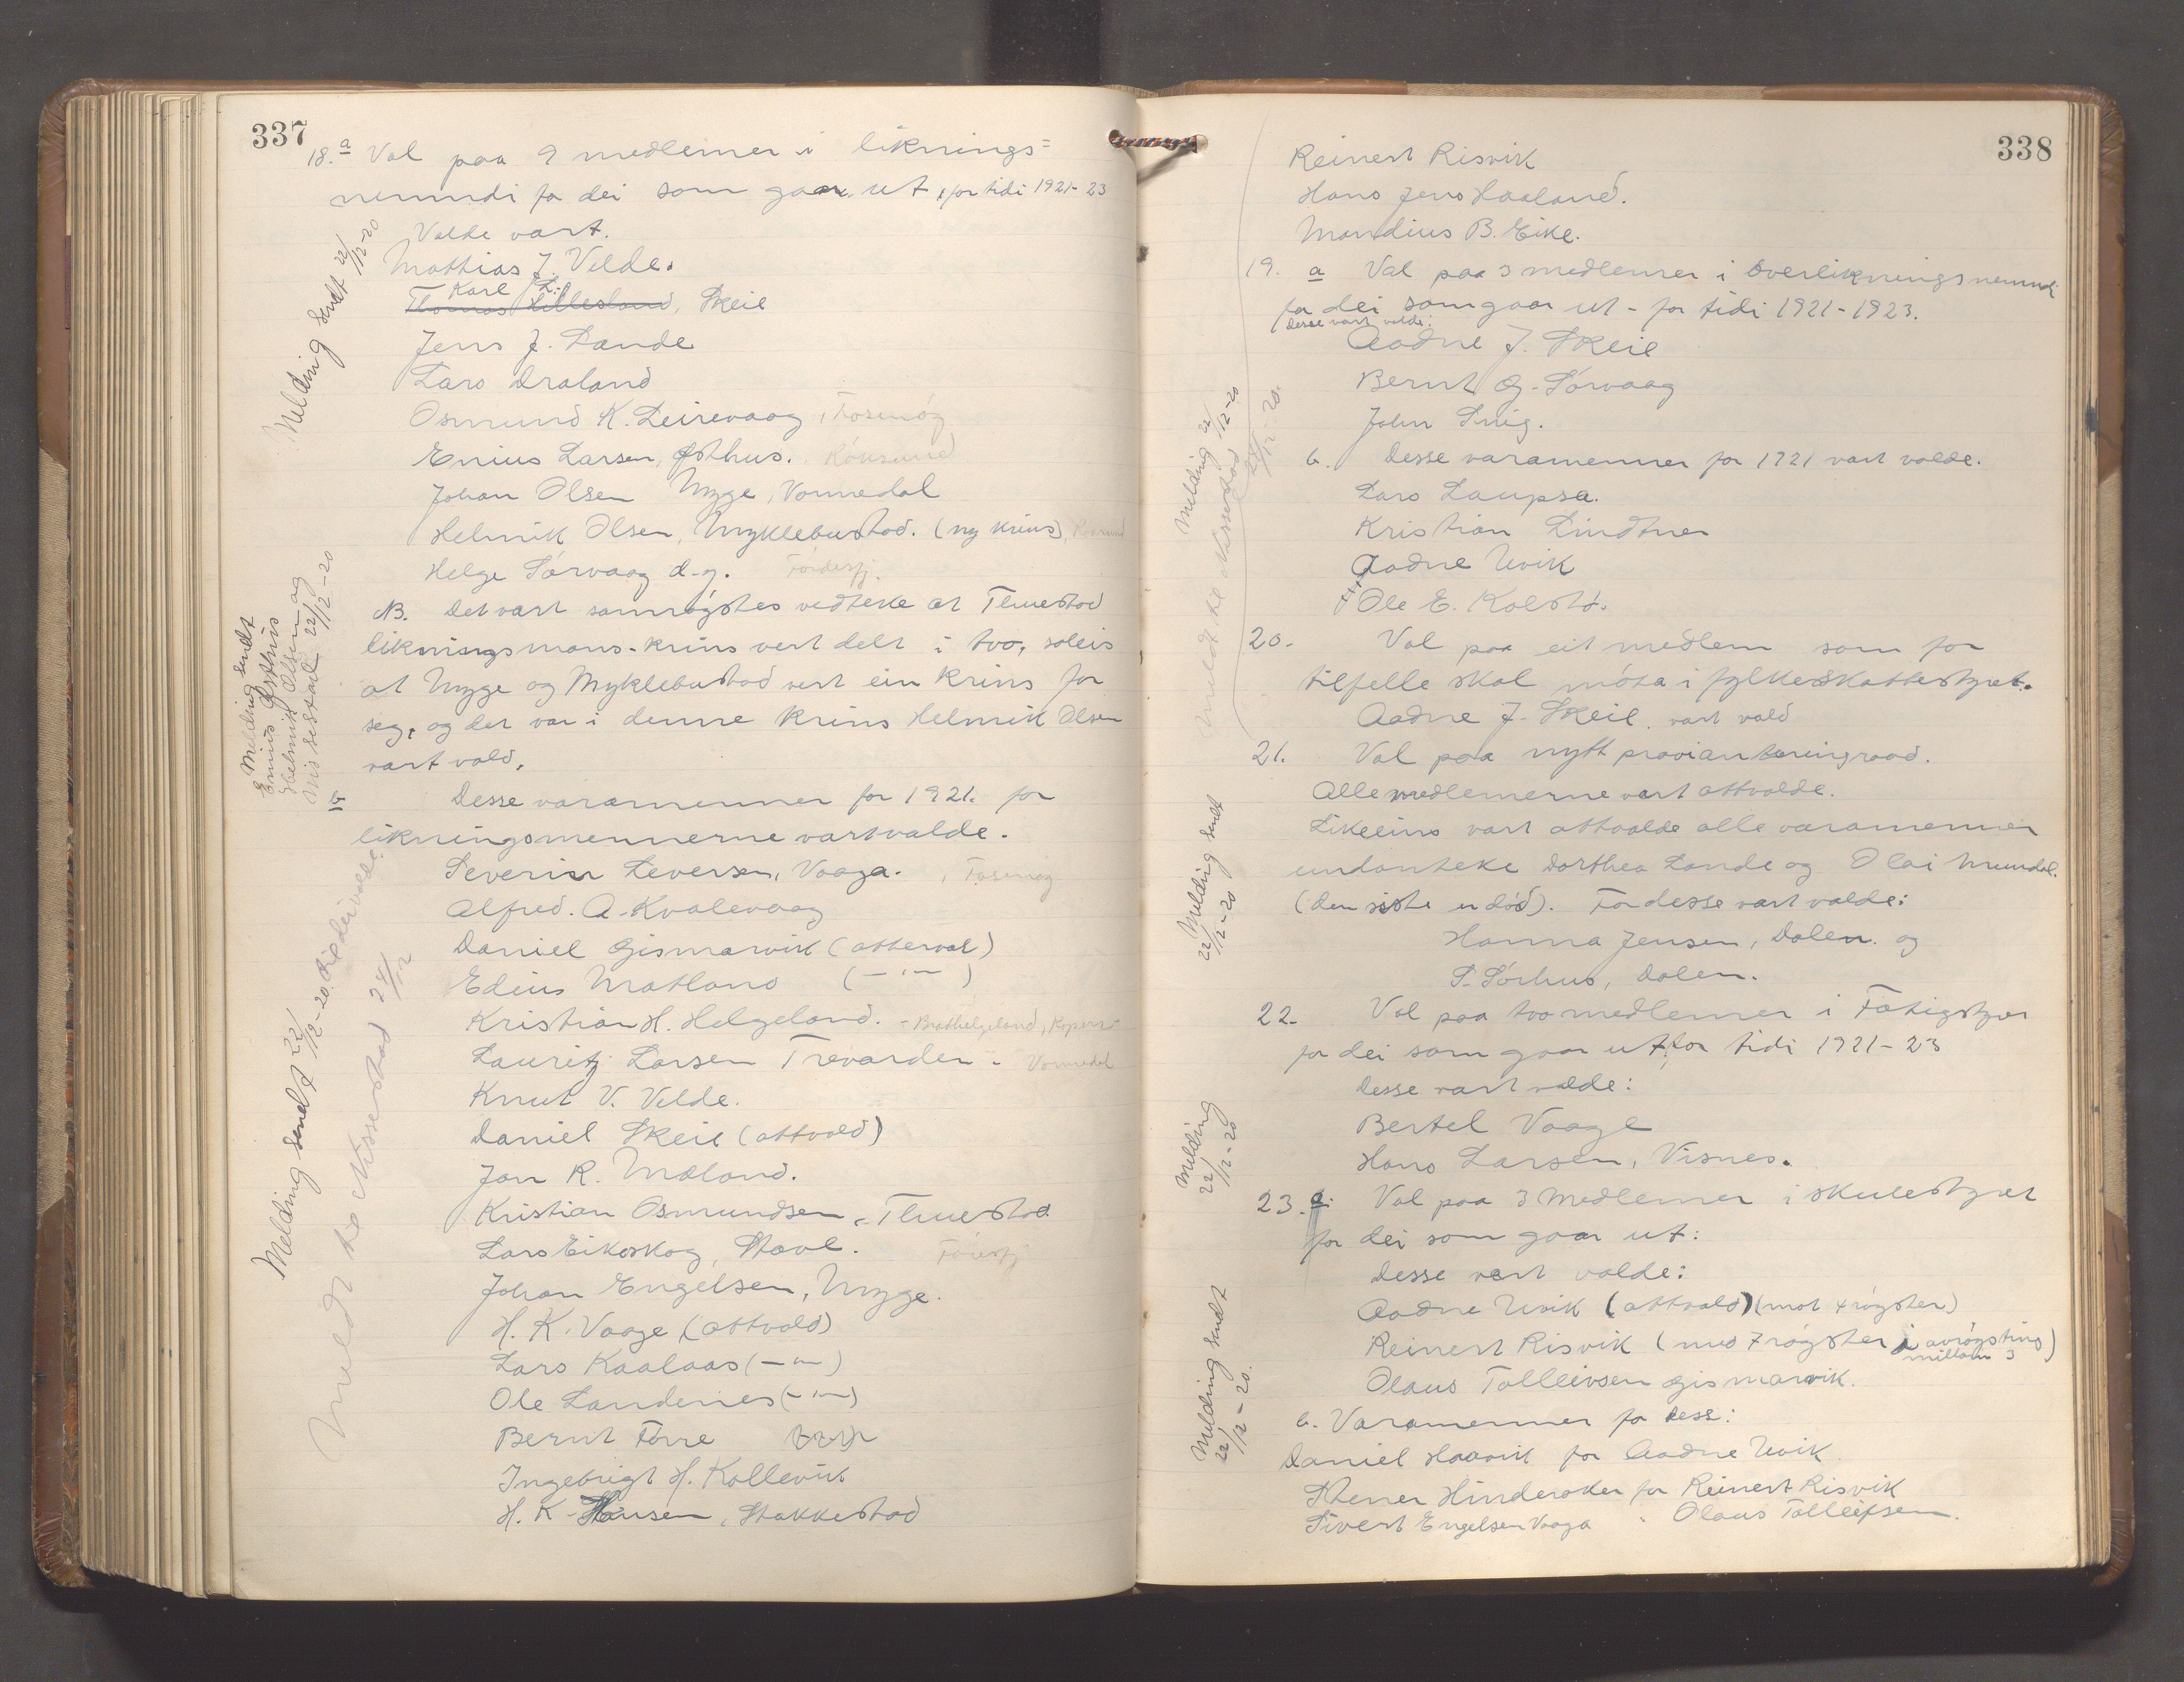 337
18. a Val paa 9 medlemer i liknings=
nemndi for dei som gaar ut, for tidi 1921-23
Valde vart.
Mathias J. Velde.
Karl
Thomas Lillesland, Skeie
Jens J. Lande
Lars Draland
Osmund K. Leirevaag, Fosenøg
Enius Larsen, Østhus. Róksund
Johan Olsen Myge, Vormedal
Helmik Olsen, Myklebustad. (ny krins),
Helge Sørvaag d.y. Fórdesfj.
NB. Det vart samrøystes vedteke at Tuestad
likningsmans-krins vert delt i tvo, soleis
at Myge og Myklebustad vert ein krins for
seg, og det var i denne krins Helmik Olsen
vart vald.
b Desse varamenner for 1921. for
likningsmennerne vart valde.
Severin Seversen, Vaaga. , Fosenøg
Alfred. A. Kvalevaag
Daniel Gismarvik (atterval)
Edeius Matland ( — " — )
Kristian H. Helgeland. - Brathelgeland, Kopervik
Lauritz Larsen Trevarden - Vormedal
Knut V. Velde.
Daniel Skeie (attvald)
Jan R. Mæland.
Kristian Osmundsen, Tuestad
Lars Eikeskog, Stavl. Fórdesfj
Johan Engelsen, Myge.
H. K. Vaage, (attvald)
Lars Kaalaas ( — " — )
Ole Landenes ( — " — )
Bernt Førre
Ingebrigt H. Kallevik
H. K. Hansen, Stakkestad
Melding sendt 22/12-20
Melding sendt
Enius Østhus
Helmik Olsen og
22/12-20
Melding sendt 22/12-20. til dei valde.
Meldt til Nissestad 24/12
338
Reinert Risvik
Hans Jens Haaland.
Mandius B. Eike.
19. a Val paa 3 medlemer i overlikningsnemnd
for dei som gaar ut - for tidi 1921-1923.
Desse vart valde:
Aadne J. Skeie
Bernt G. Sørvaag
John Snig.
b. Desse varamenner for 1921 vart valde.
Lars Laupsa.
Kristian Lindtner
Aadne Uvik
Ole E. Kolstø.
20. Val paa eit medlem som for
tilfelle skal møta i fylkesskattestyret.
Aadne J. Skeie, vart vald
21. Val paa nytt provianteringsraad.
Alle medlemerne vart attvalde.
Likeeins vart attvalde alle varamenner
undanteke Dorthea Lande og Olai Mundal.
(den siste er død). For desse vart valde:
Hanna Jensen, Dalen. og
S. Sørhus, Dalen.
22. Val paa tvo medlemer i Fatigstyret
for dei som gaar ut, for tidi 1921-23
Desse vart valde:
Bertel Vaage
Hans Larsen, Visnes.
23. a. Val paa 3 medlemer i skulestyret
for dei som gaar ut:
Desse vart valde:
Aadne Uvik (attvald) (mot 4 røyster)
Reinert Risvik (med 7 røyster i avrøysting
millom 3)
Olaus Tolleivsen Gismarvik.
b. Varamenner for desse:
Daniel Haavik for Aadne Uvik
Stener Hinderaker for Reinert Risvik
Sivert Engelsen Vaaga " Olaus Tolleifsen.
Melding 22/12-20
Meldt til Nissestad 24/12-20.
Melding sendt
22/12-20
Melding
22/12-20
Melding sendt
22/12-20.